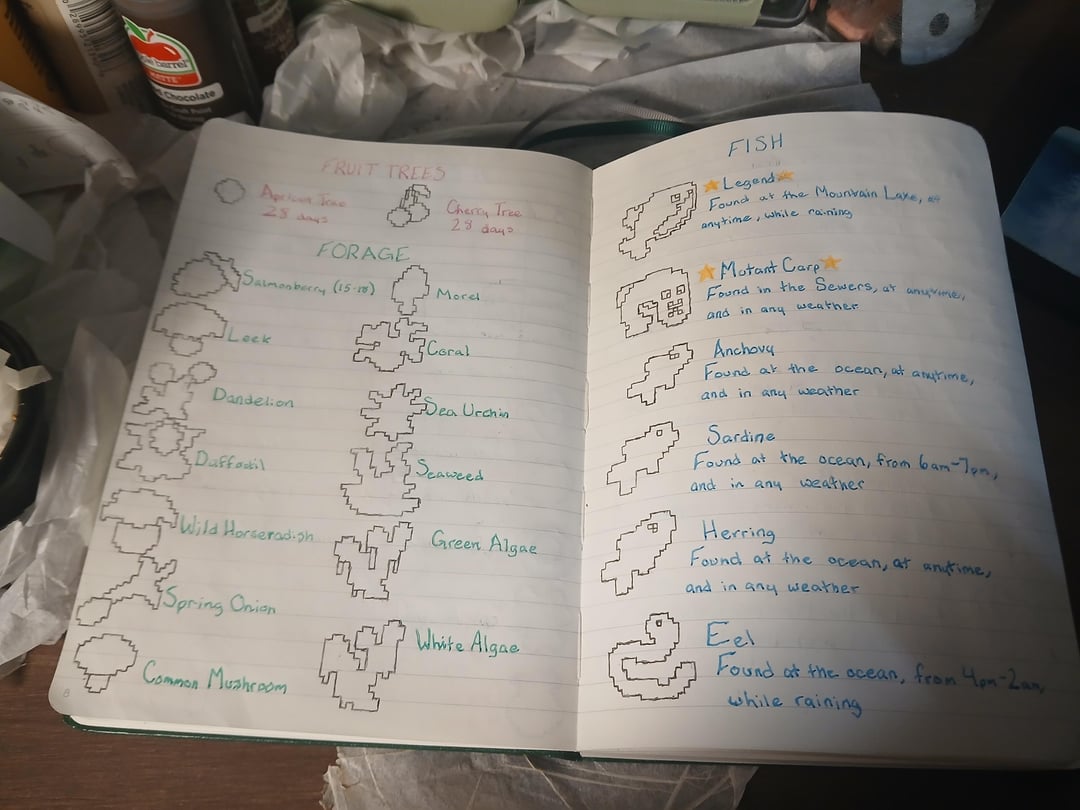 Chocolate
FRUIT TREES
Apricot Tree
28 days
Cherry Tree
28 days
FORAGE
Salmonberry (15-18)
Leek
Dandelion
Daffodil
Wild Horseradish
Spring Onion
Common Mushroom
Morel
Coral
Sea Urchin
Seaweed
Green Algae
White Algae
8
FISH
Legend
Found at the Mountain Lake, at
anytime, while raining
Mutant Carp
Found in the Sewers, at anytime,
and in any weather
Anchovy
Found at the ocean, at anytime,
and in any weather
Sardine
Found at the ocean, from 6am-7pm,
and in any weather
Herring
Found at the ocean, at anytime,
and in any weather
Eel
Found at the ocean, from 4pm-2am,
while raining